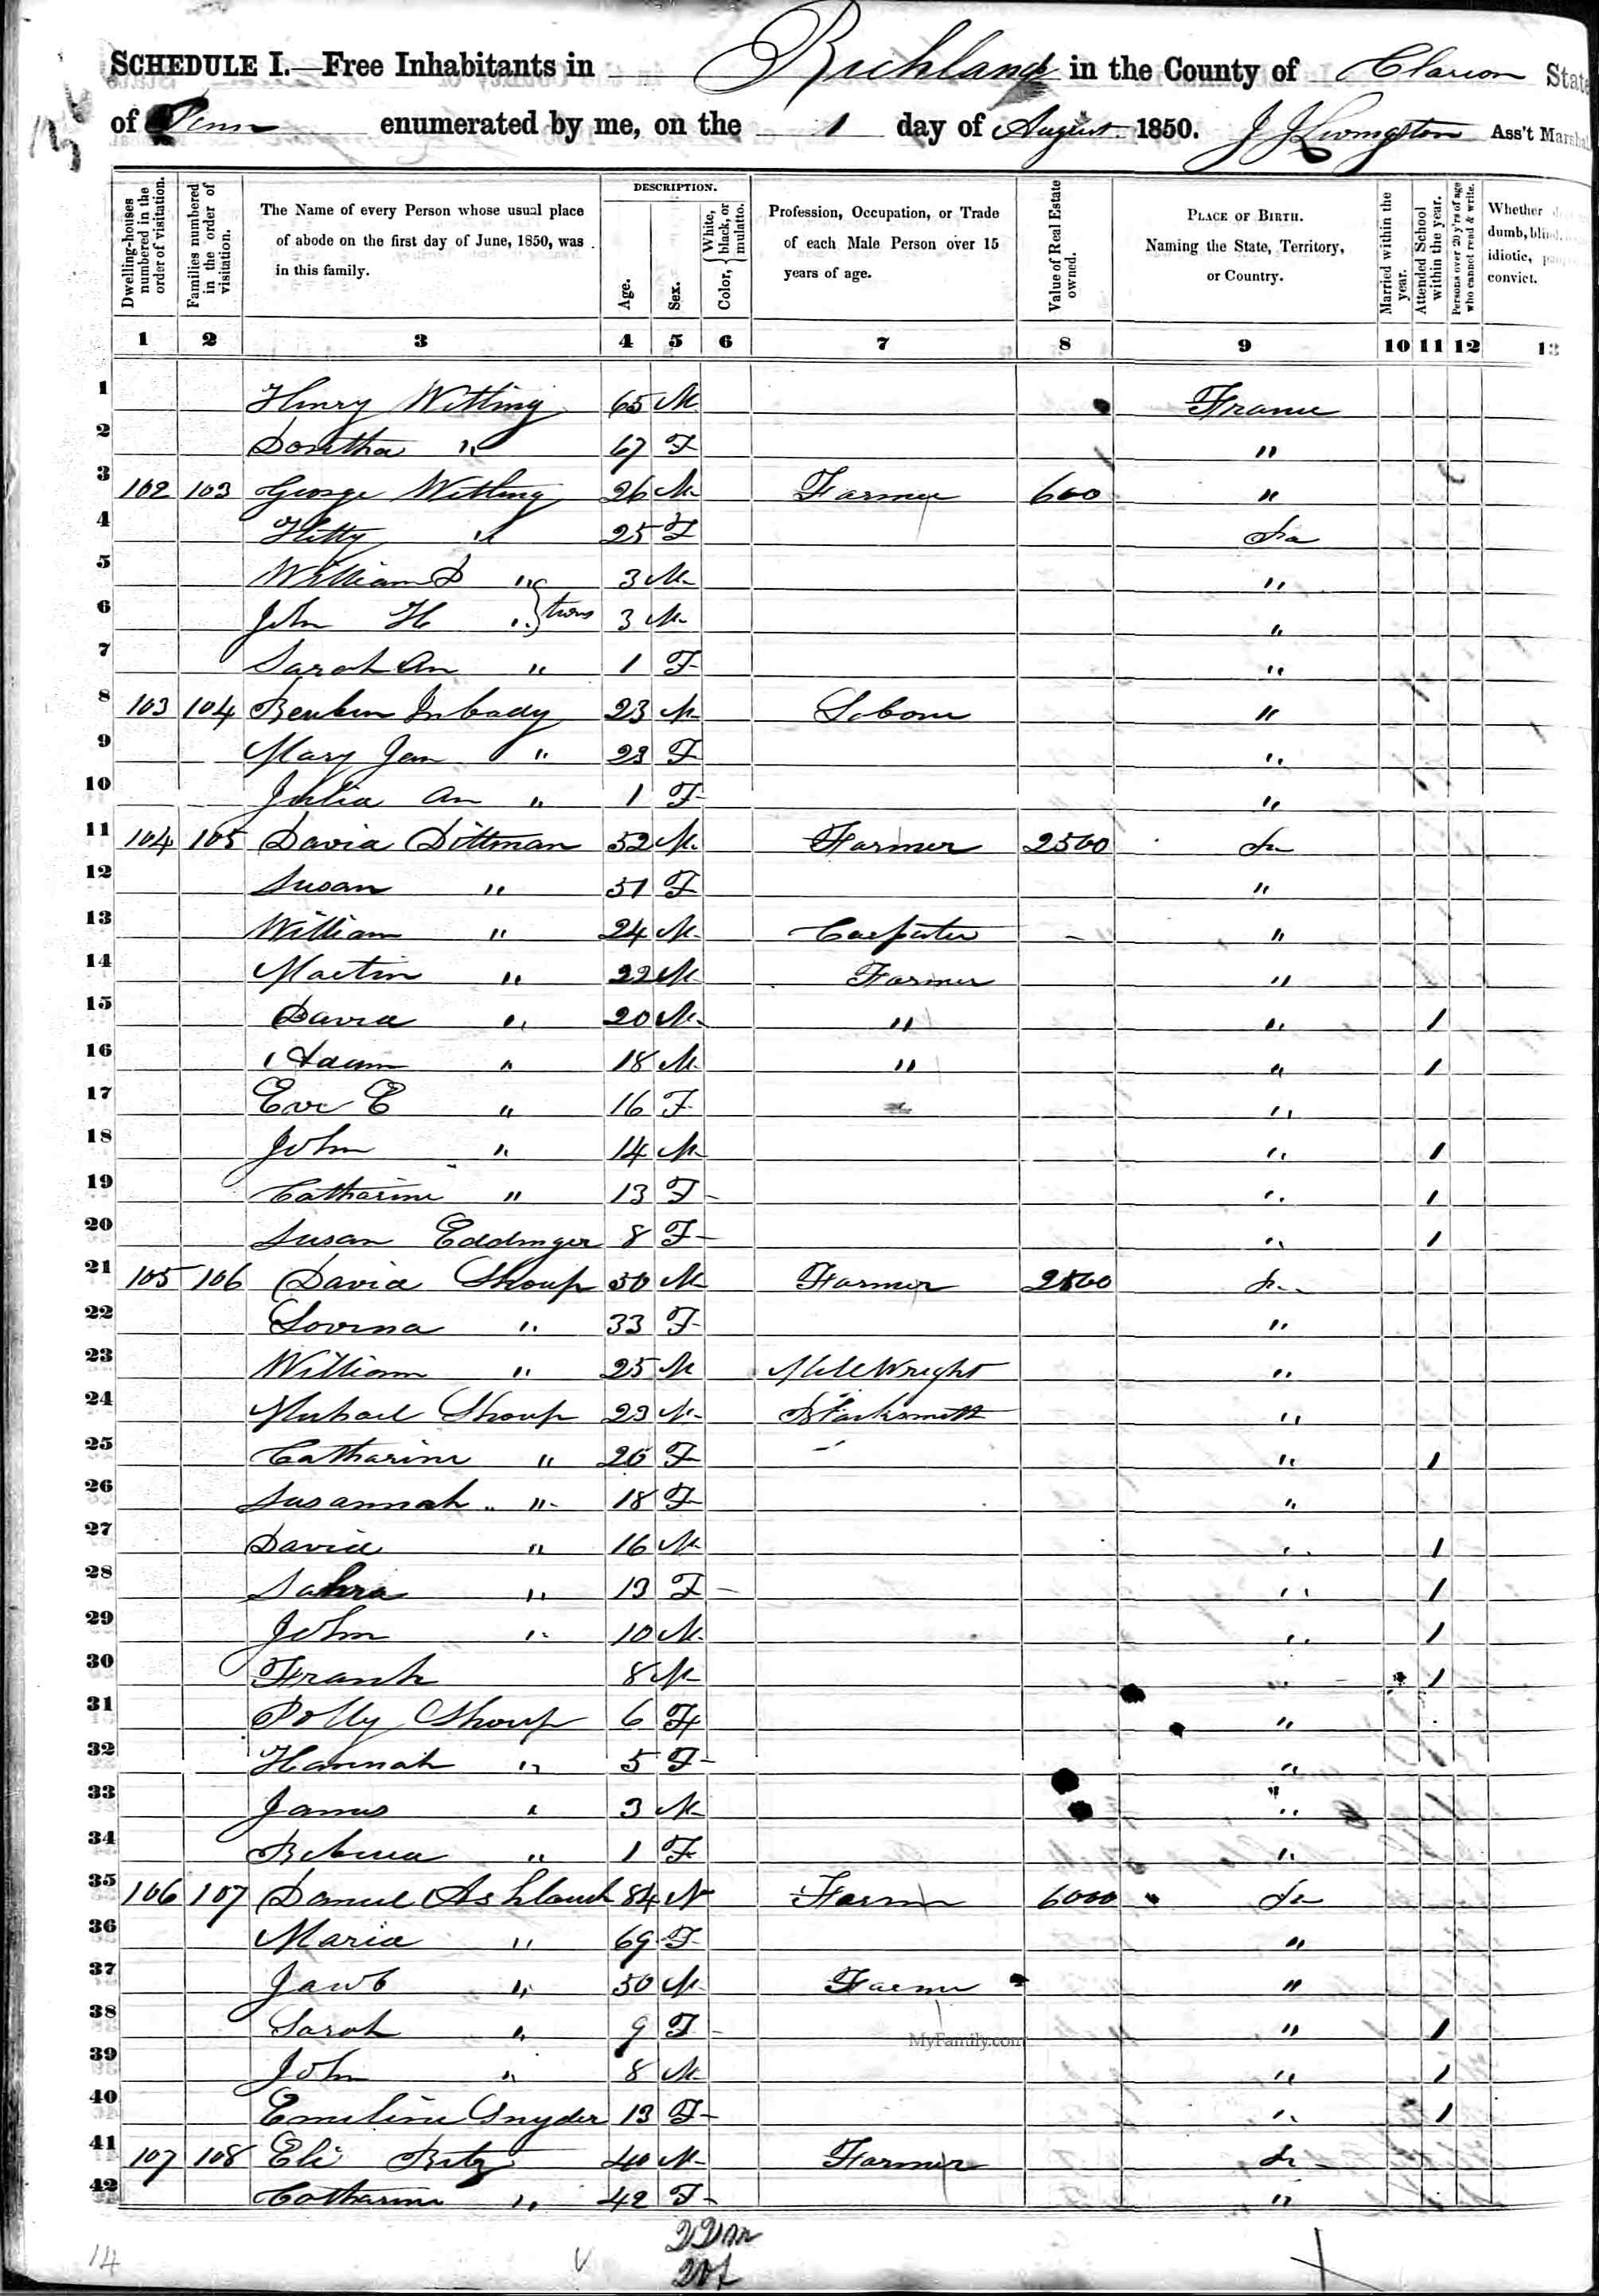 SCHEDULE I.—Free Inhabitants in Richland in the County of Clarion State
of Penn enumerated by me, on the 1 day of August 1850. J J Livingston Ass't Marshal
Dwelling-houses numbered in the order of visitation.
Families numbered in the order of visitation.
The Name of every Person whose usual place of abode on the first day of June, 1850, was in this family.
DESCRIPTION.
Age.
Sex.
Color, { White, black, or mulatto.
Profession, Occupation, or Trade of each Male Person over 15 years of age.
Value of Real Estate owned.
PLACE OF BIRTH. Naming the State, Territory, or Country.
Married within the year.
Attended School within the year.
Persons over 20 y'rs of age who cannot read & write.
Whether dumb, blind, idiotic, convict.
1 2 3 4 5 6 7 8 9 10 11 12 13
1 Henry Witling 65 M France
2 Doretha " 67 F "
3 102 103 George Witling 26 M Farmer 600 "
4 Kitty " 25 F Pa
5 William D " 3 M "
6 John H " twins 3 M "
7 Sarah An " 1 F "
8 103 104 Reuben Inbody 23 M Labour "
9 Mary Jan " 23 F "
10 Julia An " 1 F "
11 104 105 David Dittman 52 M Farmer 2500 Pa
12 Susan " 51 F "
13 William " 24 M Carpenter - "
14 Martin " 22 M Farmer "
15 David " 20 M " " 1
16 Adam " 18 M " " 1
17 Eve E " 16 F "
18 John " 14 M " 1
19 Catharine " 13 F " 1
20 Susan Eddinger 8 F " 1
21 105 106 David Shoup 50 M Farmer 2500 Pa
22 Lovina " 33 F "
23 William " 25 M MillWright "
24 Michael Shoup 23 M Blacksmith "
25 Catharine " 20 F " 1
26 Susannah " 18 F "
27 David " 16 M " 1
28 Sahra " 13 F " 1
29 John " 10 M " 1
30 Frank 8 M " 1
31 Polly Shoup 6 F "
32 Hannah " 5 F "
33 James " 3 M "
34 Rebecca " 1 F "
35 106 107 Daniel Ashbaugh 84 M Farm 6000 Pa
36 Maria " 69 F "
37 Jacob " 50 M Farmer "
38 Sarah " 9 F " 1
39 John " 8 M " 1
40 Emeline Snyder 13 F " 1
41 107 108 Eli Bitz 40 M Farmer Pa
42 Catharine " 42 F "
MyFamily.com
14